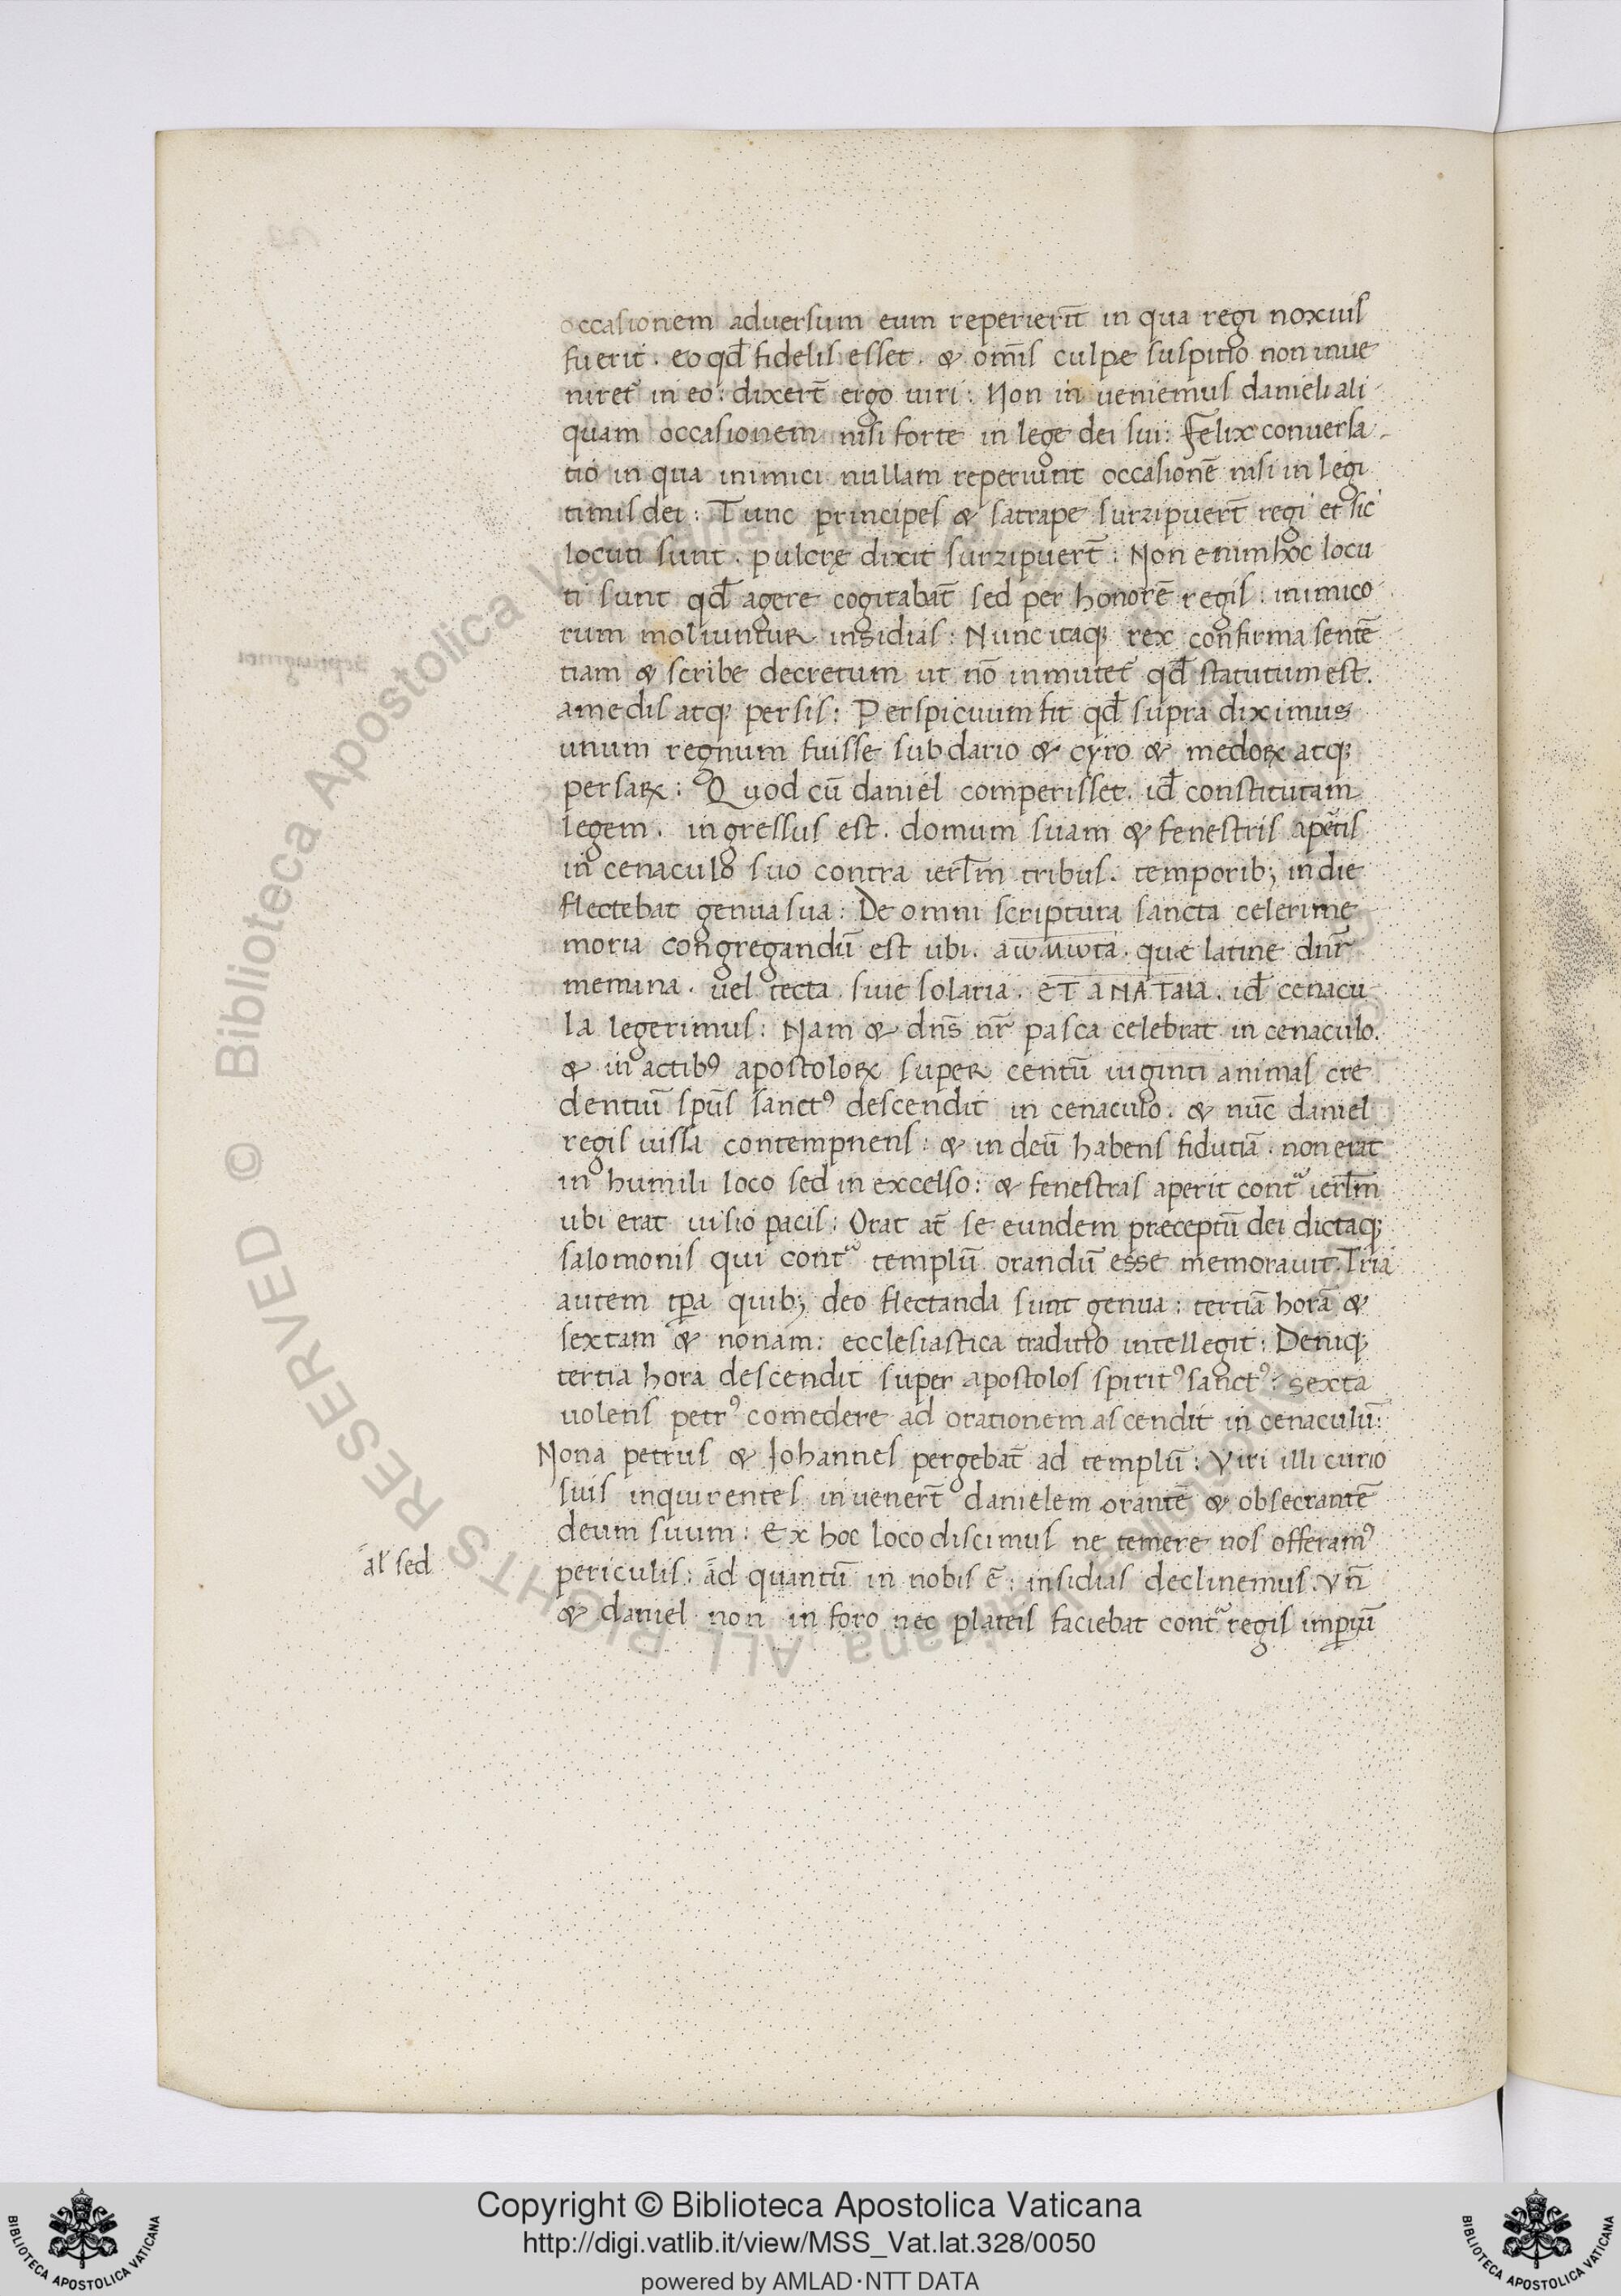 occasionem aduersum eum reperierit̄ in qua regi noxiuſ
fuerit. eo qd̄ fideliſ eſſet. & om̄iſ culpe ſuſpitio non inue
niret᷑ in eo: dixert̄ ergo uiri: Non in ueniemuſ danieli ali
quam occaſionem niſi forte in lege dei ſui: Felix conuerſa
tio in qua inimici nullam reperiunt occaſionē niſi in legi
timiſ dei: Tunc principeſ & ſatrape ſurripuert̄ regi et ſic
locuti ſunt. pulcrę dixit ſurripuert̄: Non enim hoc locu
ti ſunt qd̄ agere cogitabāt ſed per honorē regiſ: inimico
rum moliuntur inſidiaſ: Nunc itaq; rex confirma ſentē
tiam & ſcribe decretum ut nō inmutet᷑ qd̄ ſtatutum eſt.
amediſ atq; perſiſ: Perſpicuum fit qd̄ ſupra diximus
unum regnum fuiſſe ſub dario & cyro & medoꝝ atq;
perſaꝝ: Quod cū daniel comperiſſet. id̄ conſtitutam
legem. ingreſſuſ eſt. domum ſuam & feneſtriſ apẽtiſ
in cenaculo ſuo contra ierl̄m tribuſ. temporib; in die
flectebat genua ſua: De omni ſcriptura ſancta celeri me
moria congregandū eſt ubi. aωμωτα. quæ latine dn̄r
memina. uel tecta. ſiue ſolaria. ET ANATAIA. id̄ cenacu
la legerimuſ: Nam & dn̄s nr̄ paſca celebrat in cenaculo.
& in actibꝰ apoſtoloꝝ ſuper centū uiginti animaſ cre
dentiū ſpūſ ſanctꝰ deſcendit in cenaculo. & nūc daniel
regiſ uiſſa contempnenſ: & in deū habenſ fidutiā. non erat
in humili loco ſed in excelſo: & feneſtraſ aperit contᵃ ierl̄m
ubi erat uiſio paciſ: Orat at̄ ſe eundem præceptū dei dictaq;
ſalomoniſ qui contᵃ templū orandū esse memorauit. Tria
autem tp̄a quib; deo flectanda ſunt genua: tertiā horā &
ſextam & nonam: eccleſiaſtica traditio intellegit: Deniq;
tertia hora deſcendit ſuper apoſtoloſ ſpiritꝰ ſanctꝰ: sexta
uolenſ petrꝰ comedere ad orationem aſcendit in cenaculū:
Nona petruſ & Johanneſ pergebāt ad templū: Viri illi curio
ſiuſ inquirenteſ inuenert̄ danielem orantē & obſecrantē
deum ſuum: Ex hoc loco diſcimuſ ne temere noſ offeramꝰ
al̄ ſed
periculiſ: ad quantū in nobiſ ē: inſidiaſ declinemuſ. Vn̄
& daniel non in foro nec plateiſ faciebat contᵃ regiſ imꝑiū
Copyright © Biblioteca Apostolica Vaticana
http://digi.vatlib.it/view/MSS_Vat.lat.328/0050
powered by AMLAD·NTT DATA